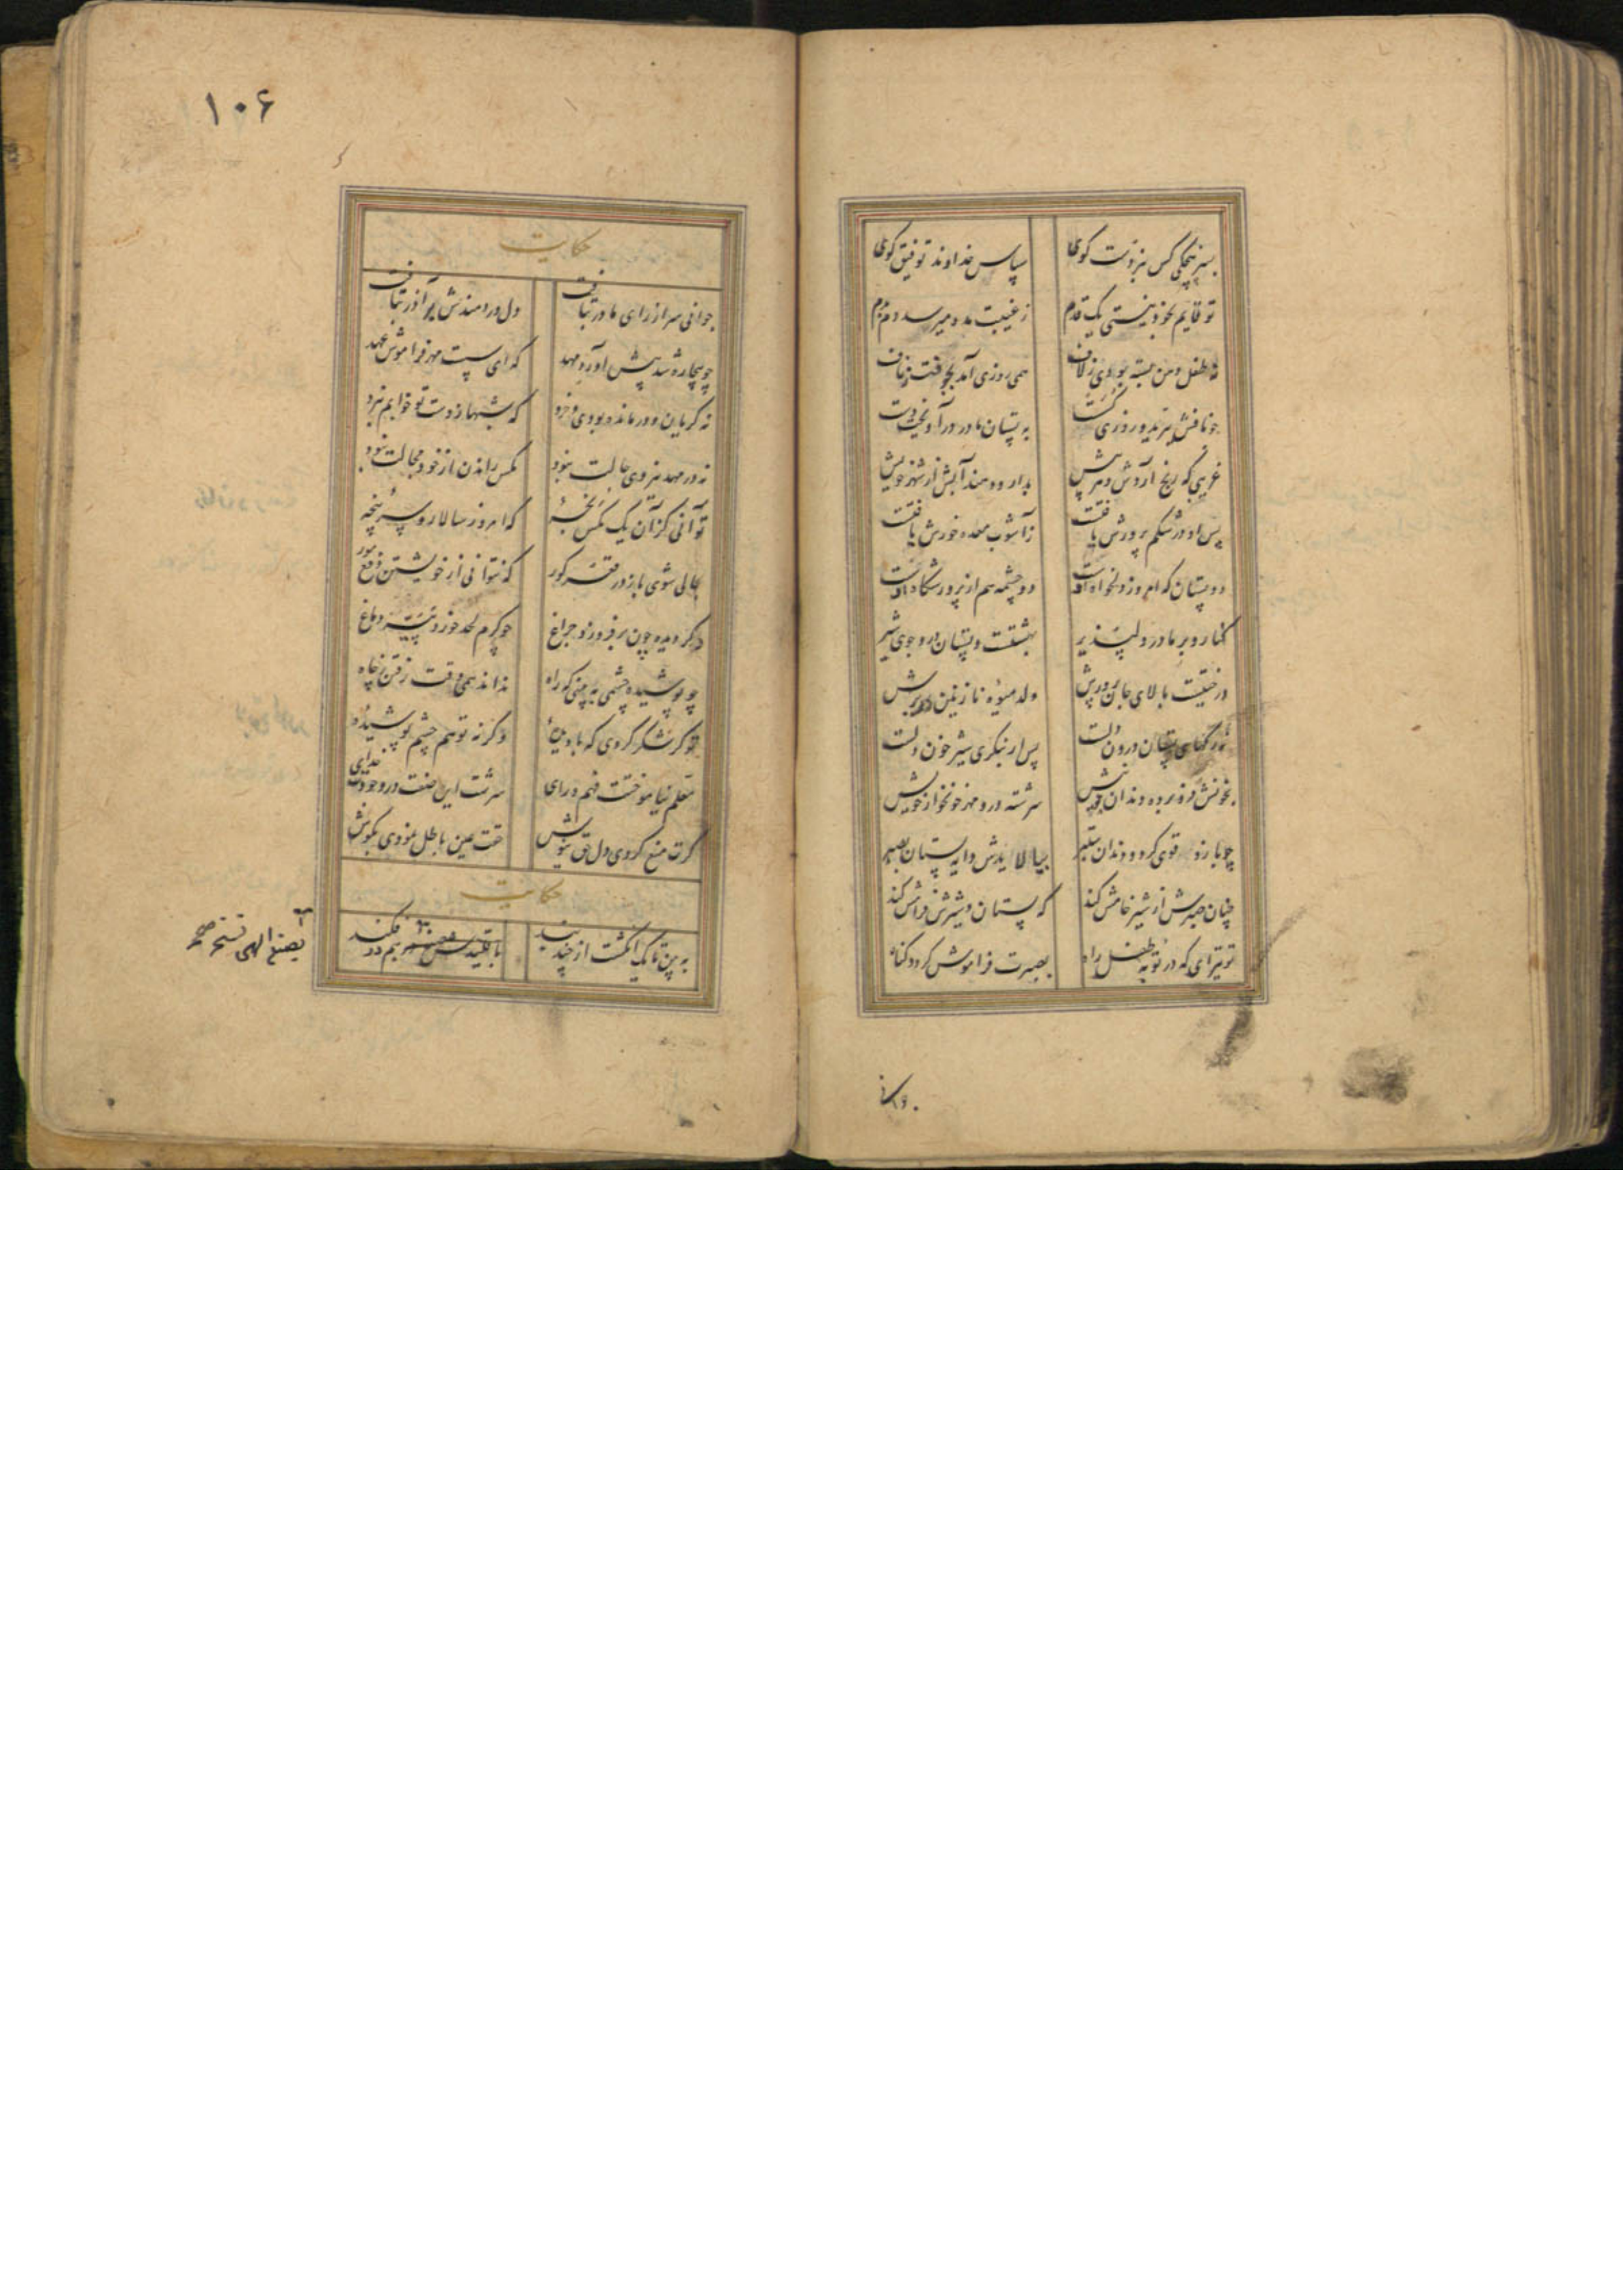 بسرپنجگی کس نبردست گوی سپاس خداوند توفیق گوی
تو قایم بخود نیستی یک قدم ز غیبت مدد میرسد دم بدم
نه طفل دهن بسته بودی ز لاف همی روزی آمد بجوفت ز ناف
چو نافش بریدند و روزی گسست به پستان مادر در آویخت دست
غریبی که رنج آردش دهر پیش بدارو دهند آبش از شهر خویش
پس او در شکم پرورش یافتست ز آشوب معده خورش یافتست
دو پستان که امروز دلخواه اوست دو چشمه هم از پرورشگاه اوست
کنار و بر مادر دلپذیر بهشتست و پستان درو جوی شیر
درختیست بالای جان پرورش ولد میوه نازنین در برش
نه رگهای پستان درون دلست پس ار بنگری شیر خون دلست
بخونش فرو برده دندان چو نیش سرشته درو مهر خونخوار خویش
چو بازو قوی کرد و دندان ستبر بیالایدش دایه پستان بصبر
چنان صبرش از شیر خامش کند که پستان و شیرش فرامش کند
تو نیز ای که در توبه طفل راه بصبرت فراموش گردد گناه
۱۰۶
حکایت
جوانی سر از رای مادر بتافت دل دردمندش بر آذر بتافت
چو بیچاره شد پیشش آورد مهد که ای سست مهر فراموش عهد
نه گریان و درمانده بودی و خرد که شبها ز دست تو خوابم نبرد
نه در مهد نیروی حالت نبود مگس راندن از خود مجالت نبود
تو آنی کزان یک مگس رنجه که امروز سالار و سرپنجه
بحالی شوی باز در قعر گور که نتوانی از خویشتن دفع مور
دگر دیده چون برفروزد چراغ چو کرم لحد خورد پیه دماغ
چو پوشیده چشمی به بینی که راه نداند همی وقت رفتن ز چاه
تو گر شکر کردی که با دیدهٔ وگرنه تو هم چشم پوشیدهٔ
معلم نیاموختت فهم و رای سرشت این صفت در وجودت خدای
گرت منع کردی دل حق نیوش حقت عین باطل نمودی بگوش
حکایت
به بین تا یک انگشت از چند بند باقلیدس بهم در فکند
بصنع الهی نسخه صح